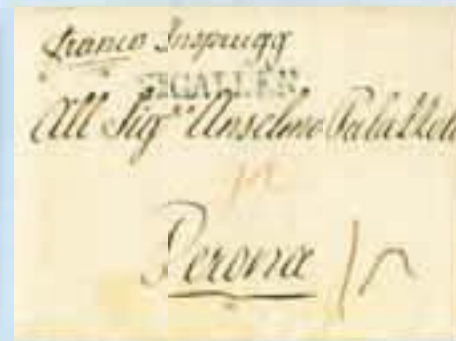 franco Insprugg
ST GALLEN
All Sig.re Anselmo
Verona